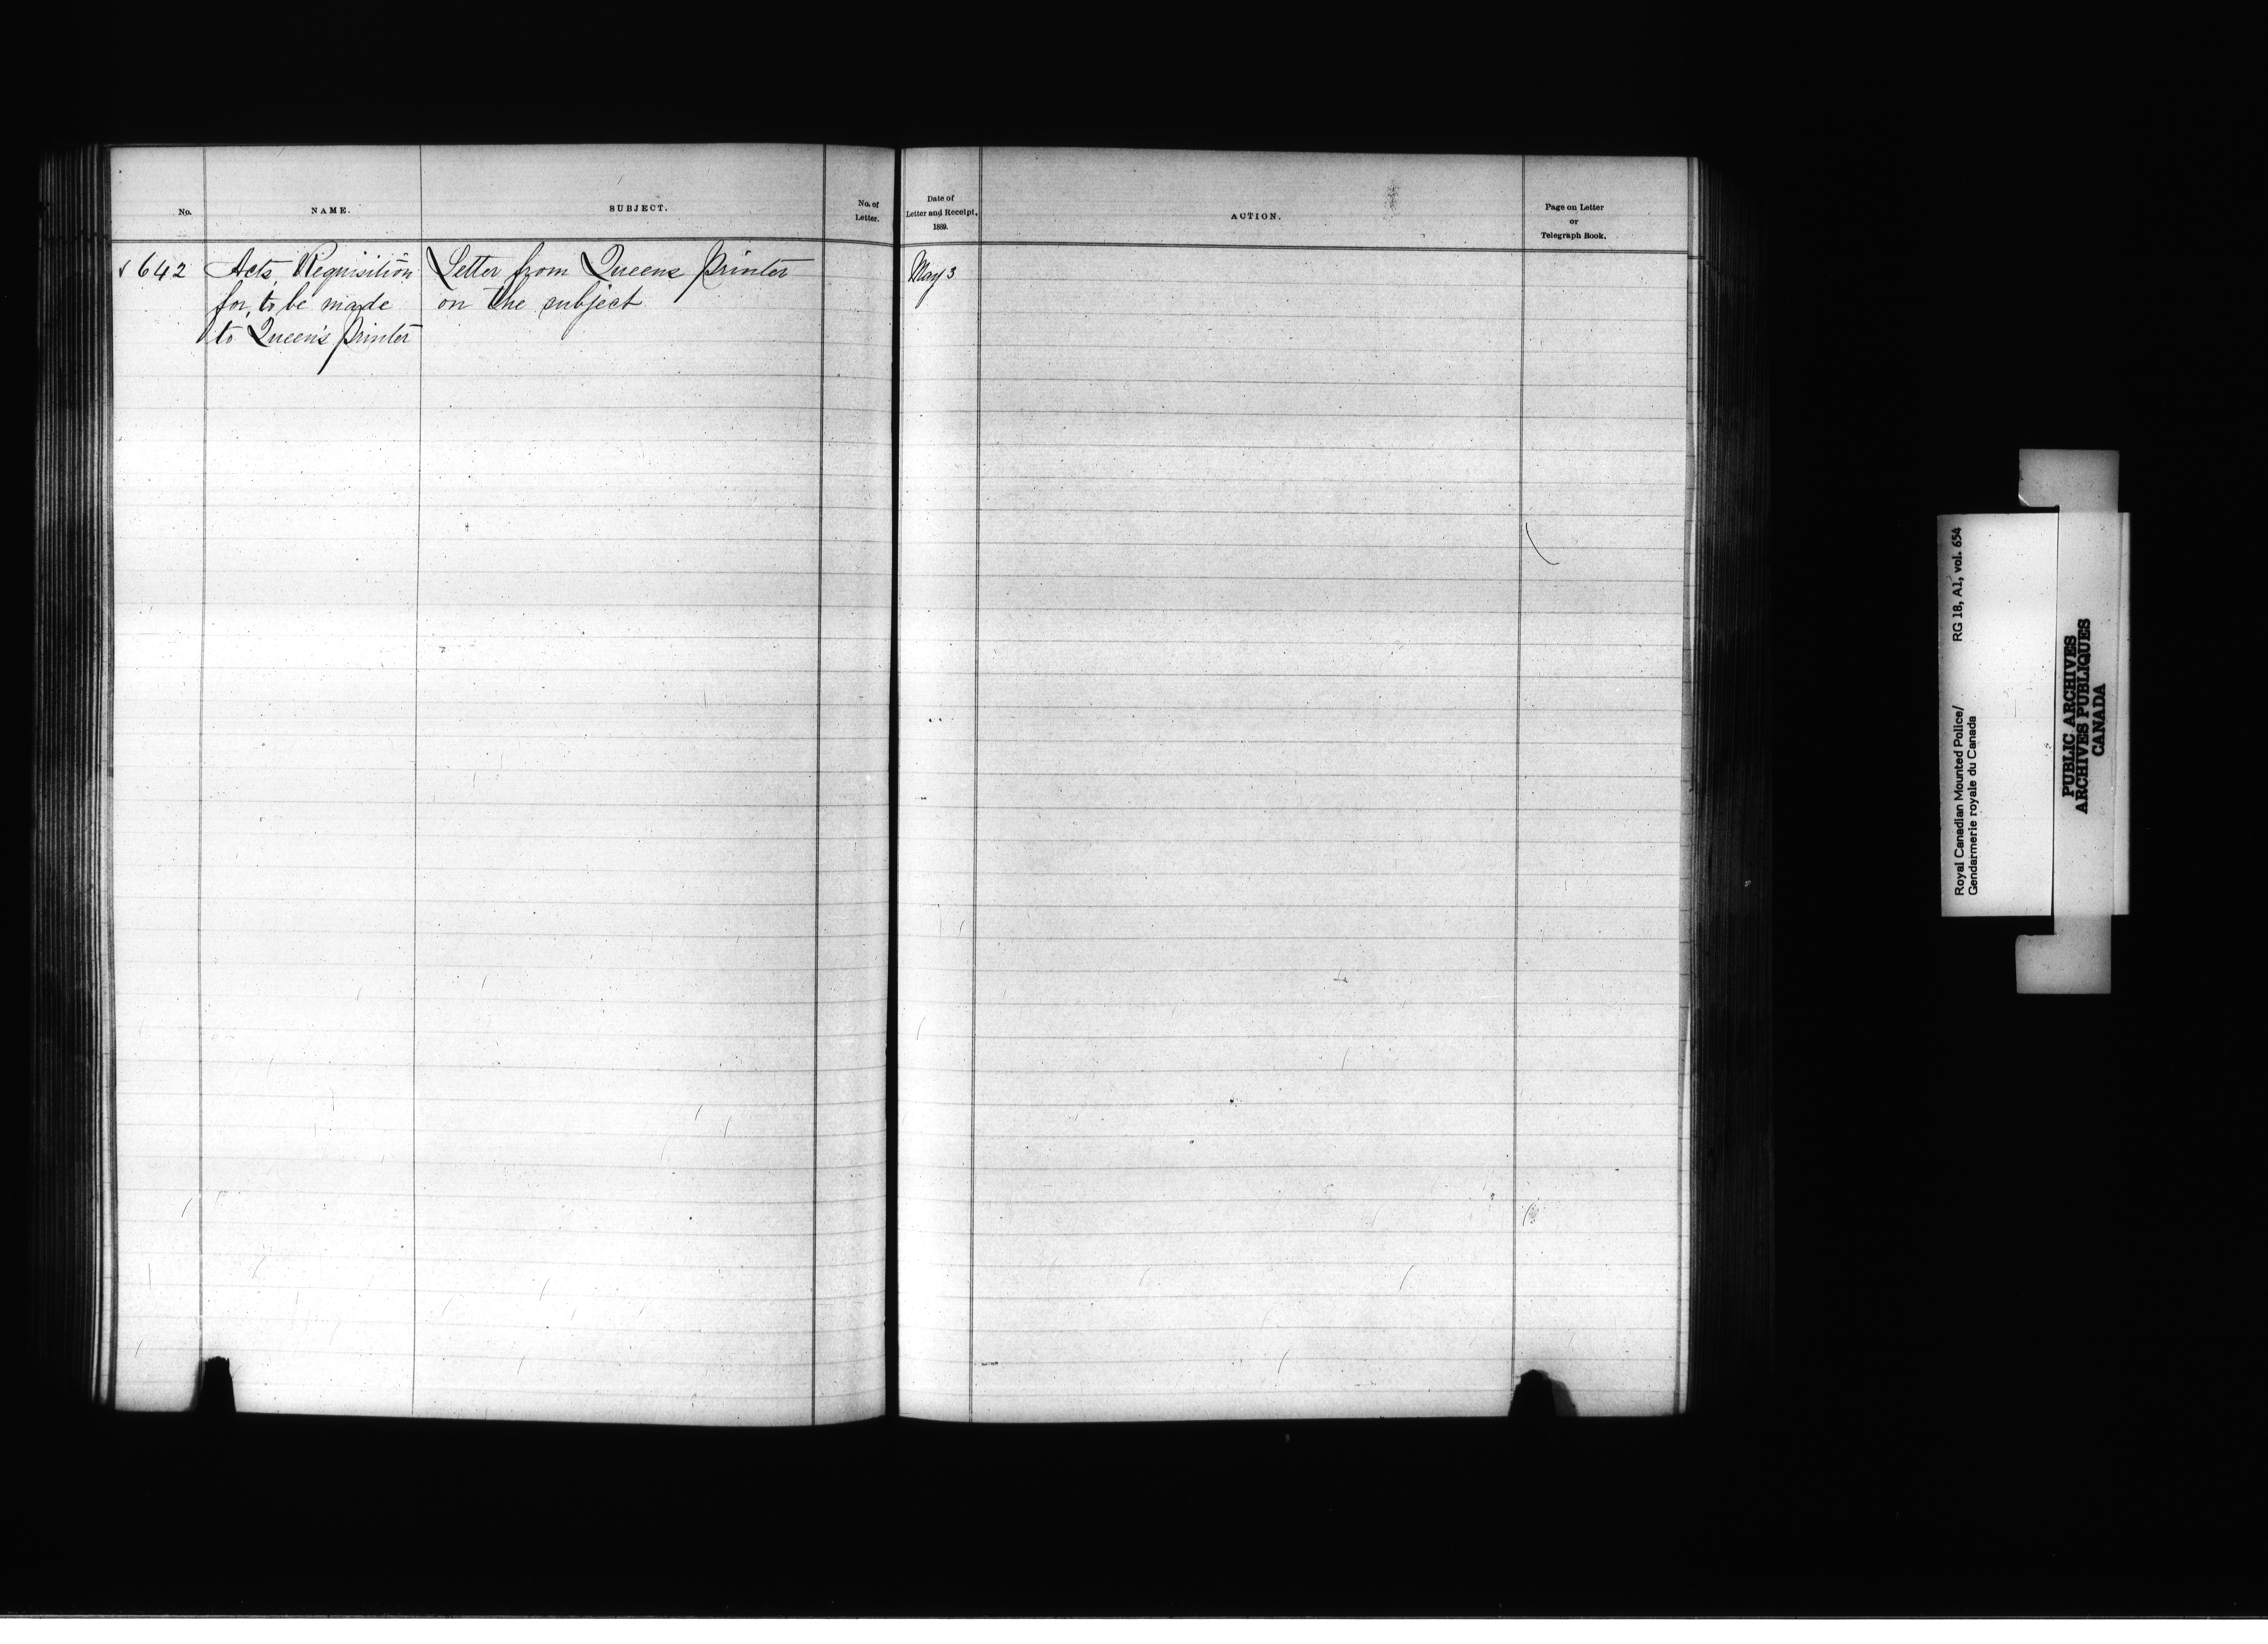 No.
NAME.
SUBJECT.
No. of
Letter.
Date of
Letter and Receipt,
1889.
ACTION.
Page on Letter
or
Telegraph Book.
642 Acts, Requisition Letter from Queens Printer May 3
for, to be made on the subject
to Queen's Printer
Royal Canadian Mounted Police/ RG 18, A1, vol. 654
Gendarmerie royale du Canada
PUBLIC ARCHIVES
ARCHIVES PUBLIQUES
CANADA